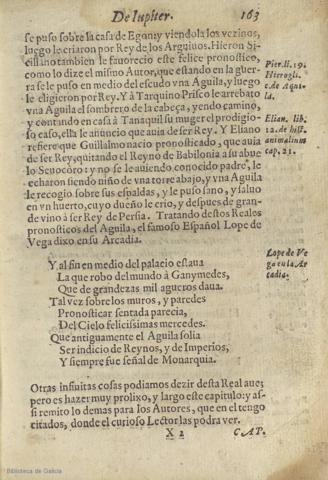 De Iupiter.
163
se puso sobre la casa de Egon; y viendola los vezinos,
luego le criaron por Rey de los Argiuos. Hieron Si-
ciliano tambien le fauorecio este felice pronostico,
como lo dize el mismo Autor, que estando en la guer-
ra se le puso en medio del escudo vna Aguila, y luego
le eligieron por Rey. Y à Tarquino Prisco le arrebato
vna Aguila el sombrero de la cabeça, yendo camino,
y contando en casa à Tanaquil su muger el prodigio-
so caso, ella le anuncio que auia de ser Rey. Y Eliano
refiere que Guillalmo nacio pronosticado, que auia
de ser Rey, quitando el Reyno de Babilonia a su abue
lo Seuocoro: y no se le auiendo conocido padre, le
echaron siendo niño de vna torre abajo, y vna Aguila
le recogio sobre sus espaldas, y le puso sano, y saluo
en vn huerto, cuyo dueño le crio, y despues de gran-
de vino à ser Rey de Persia. Tratando destos Reales
pronosticos del Aguila, el famoso Español Lope de
Vega dixo en su Arcadia.
Pier. li. 19.
Hierogli.
c. de Aqui-
la.
Elian. lib.
12. de hist.
animalium
cap. 21.
Lope de Ve
ga en la Ar
cadia.
Y al fin en medio del palacio estaua
La que robo del mundo à Ganymedes,
Que de grandezas mil agueros daua.
Tal vez sobre los muros, y paredes
Pronosticar sentada parecia,
Del Cielo felicissimas mercedes.
Que antiguamente el Aguila solia
Ser indicio de Reynos, y de Imperios,
Y siempre fue señal de Monarquia.
Otras infinitas cosas podiamos dezir desta Real aue;
pero es hazer muy prolixo, y largo este capitulo: y as-
si remito lo demas para los Autores, que en el tengo
citados, donde el curioso Lector las podra ver.
X 2
CAP.
Biblioteca de Galicia